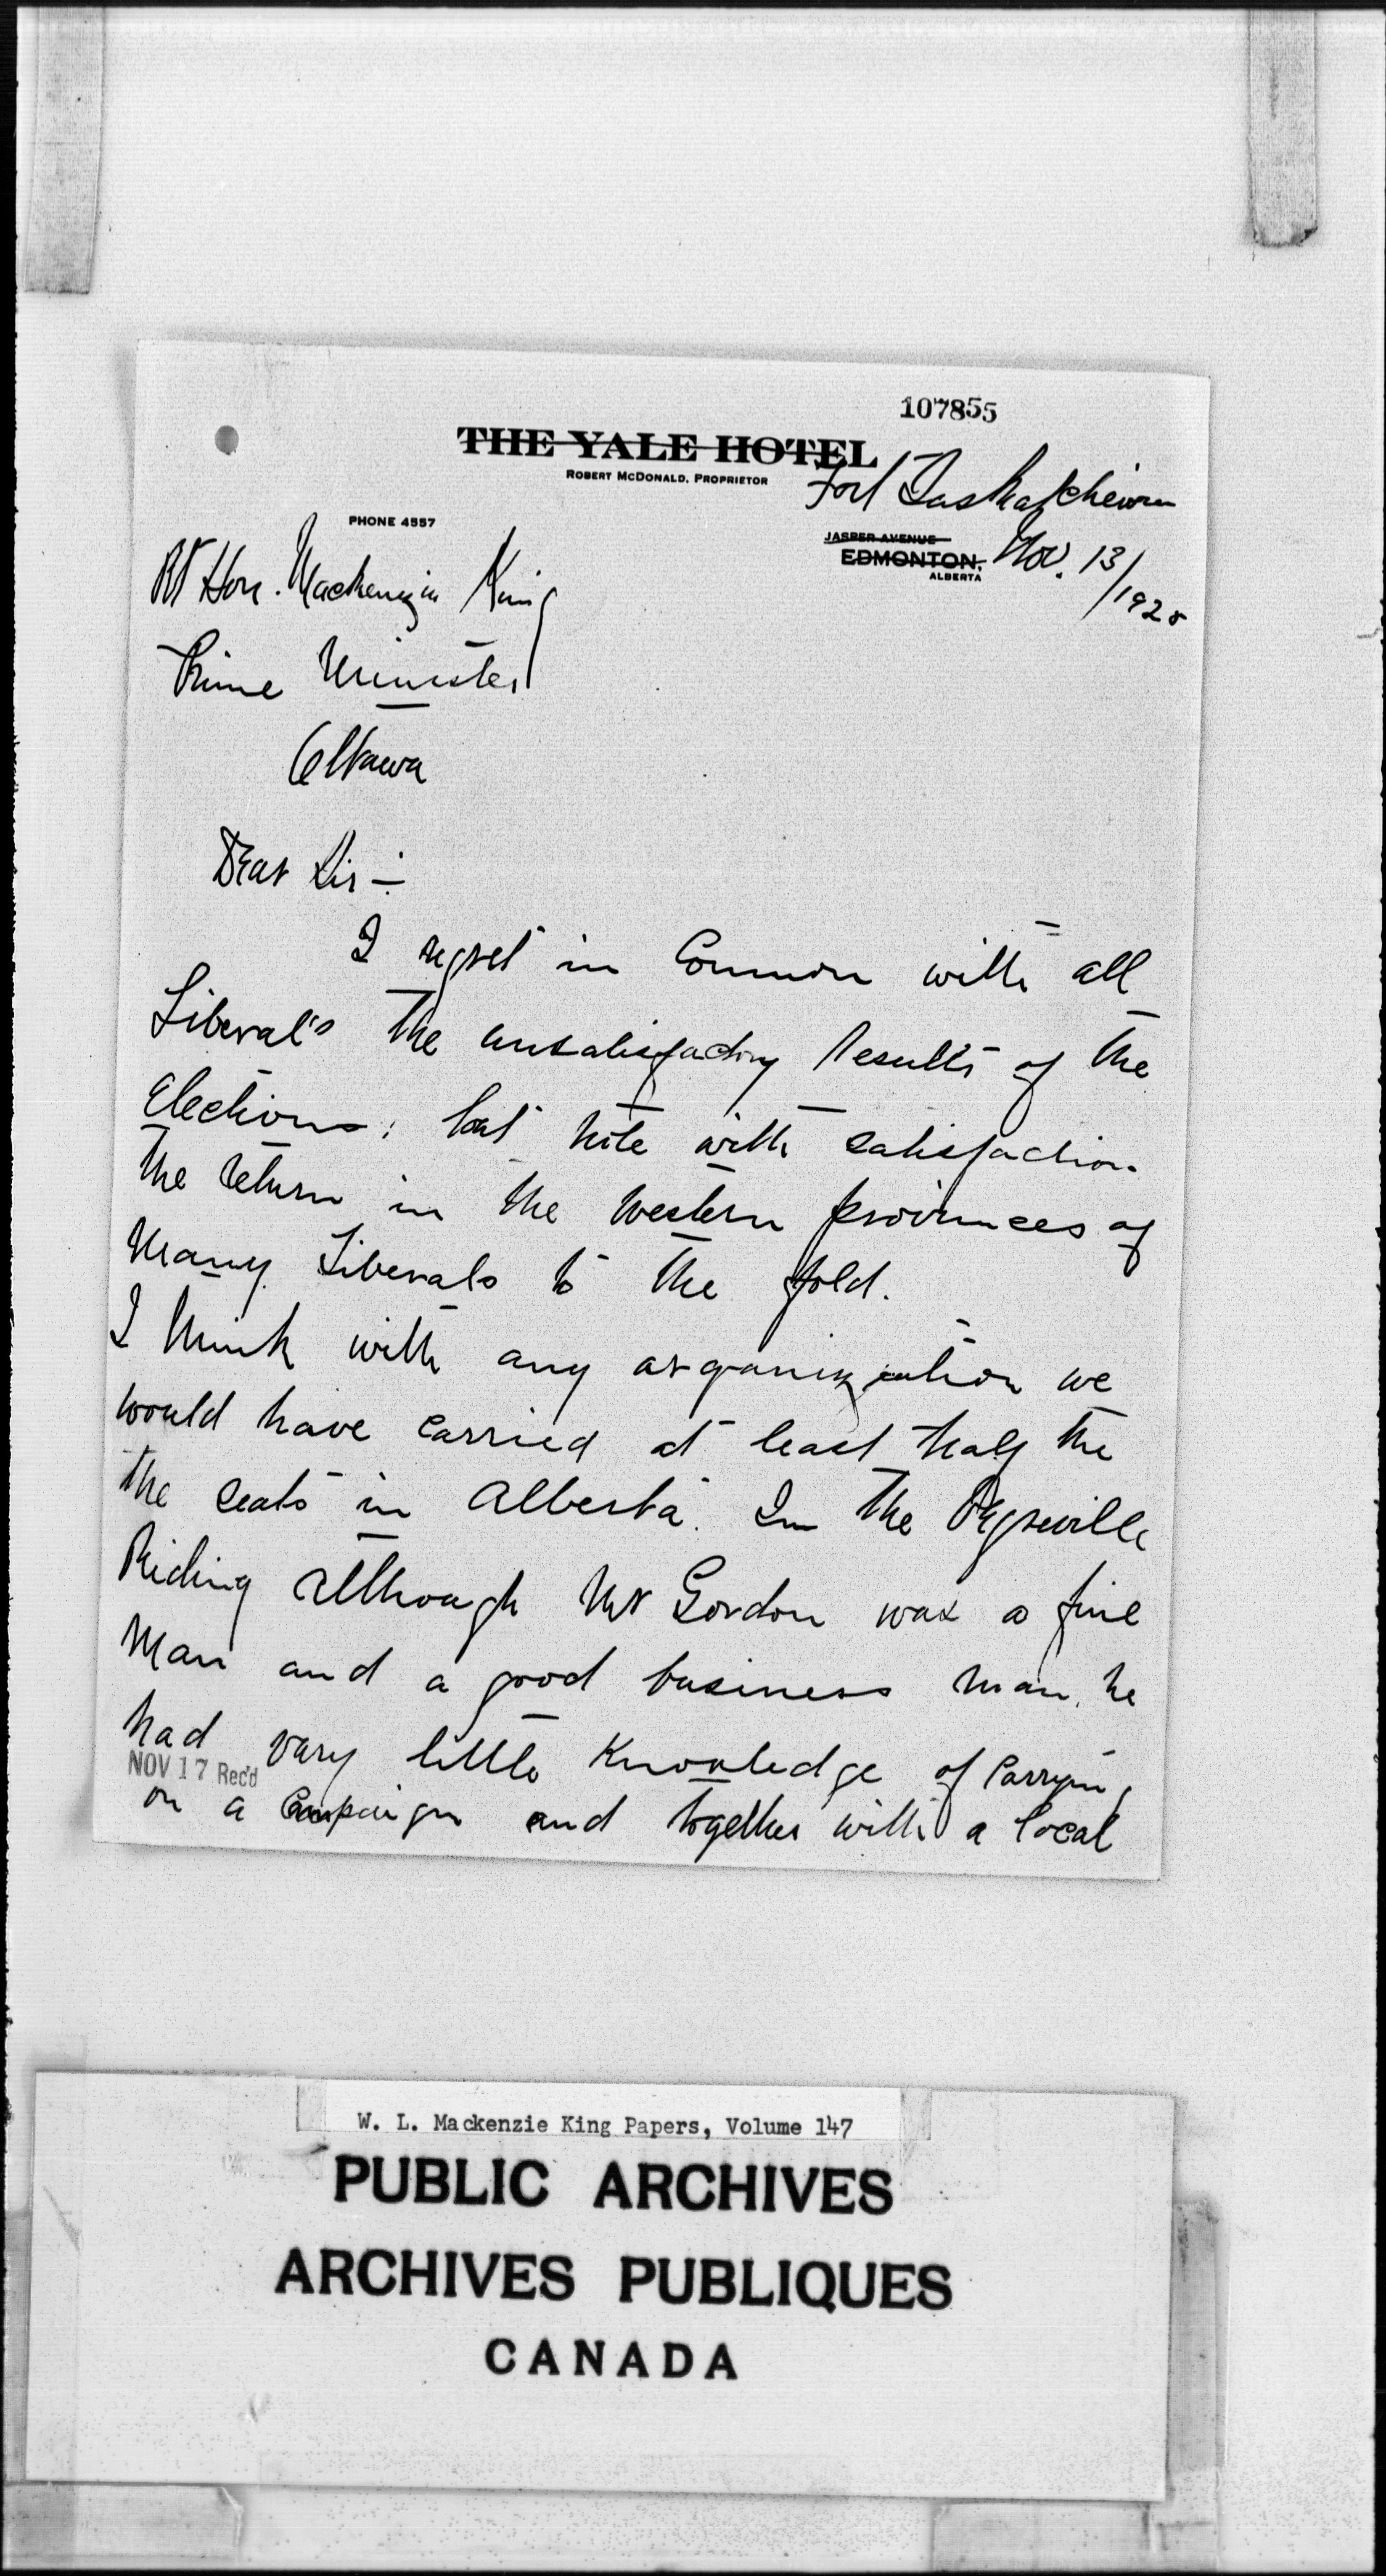 107855
THE YALE HOTEL
ROBERT McDONALD, PROPRIETOR
Fort Saskatchewan
PHONE 4557
JASPER AVENUE
EDMONTON, Nov. 13/
ALBERTA
/1925
Rt Hon. Mackenzie King
Prime Minister
Ottawa
Dear Sir -
I regret in Common with all
Liberal's the unsatisfactory results of the
Elections; but note with satisfaction
the return in the Western provinces of
Many Liberals to the fold.
I think with any organization we
would have carried at least half the
the seats in Alberta. In the Vegreville
Riding although Mr Gordon was a fine
Man and a good business man, he
had vary little Knowledge of Carrying
NOV 17 Rec'd
on a Campaign and together with a local
W. L. Mackenzie King Papers, Volume 147
PUBLIC ARCHIVES
ARCHIVES PUBLIQUES
CANADA